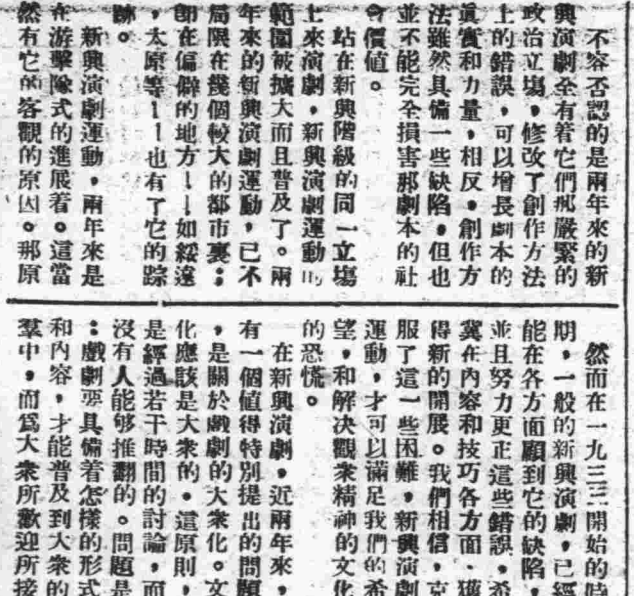 不容否認的是兩年來的新
興演劇全有着它們那嚴緊的
政治立塲，修改了創作方法
上的錯誤，可以增長劇本的
眞實和力量，相反，創作方
法雖然具備一些缺陷，但也
並不能完全損害那劇本的社
會價値。
站在新興階級的同一立塲
上來演劇，新興演劇運動的
範圍被擴大而且普及了。兩
年來的新興演劇運動，已不
局限在幾個較大的都市裏；
卽在偏僻的地方——如綏遠
，太原等——也有了它的踪
跡。
新興演劇運動，兩年來是
在游擊隊式的進展着。這當
然有它的客觀的原因。那原
然而在一九三三開始的時
期，一般的新興演劇，已經
能在各方面顧到它的缺陷，
並且努力更正這些錯誤，希
冀在內容和技巧各方面，獲
得新的開展。我們相信，克
服了這一些困難，新興演劇
運動，才可以滿足我們的希
望，和解決觀衆精神的文化
的恐慌。
在新興演劇，近兩年來，
有一個値得特別提出的問題
，是關於戲劇的大衆化。文
化應該是大衆的。這原則，
是經過若干時間的討論，而
沒有人能够推翻的。問題是
：戲劇要具備着怎樣的形式
和內容，才能普及到大衆的
羣中，而爲大衆所歡迎所接